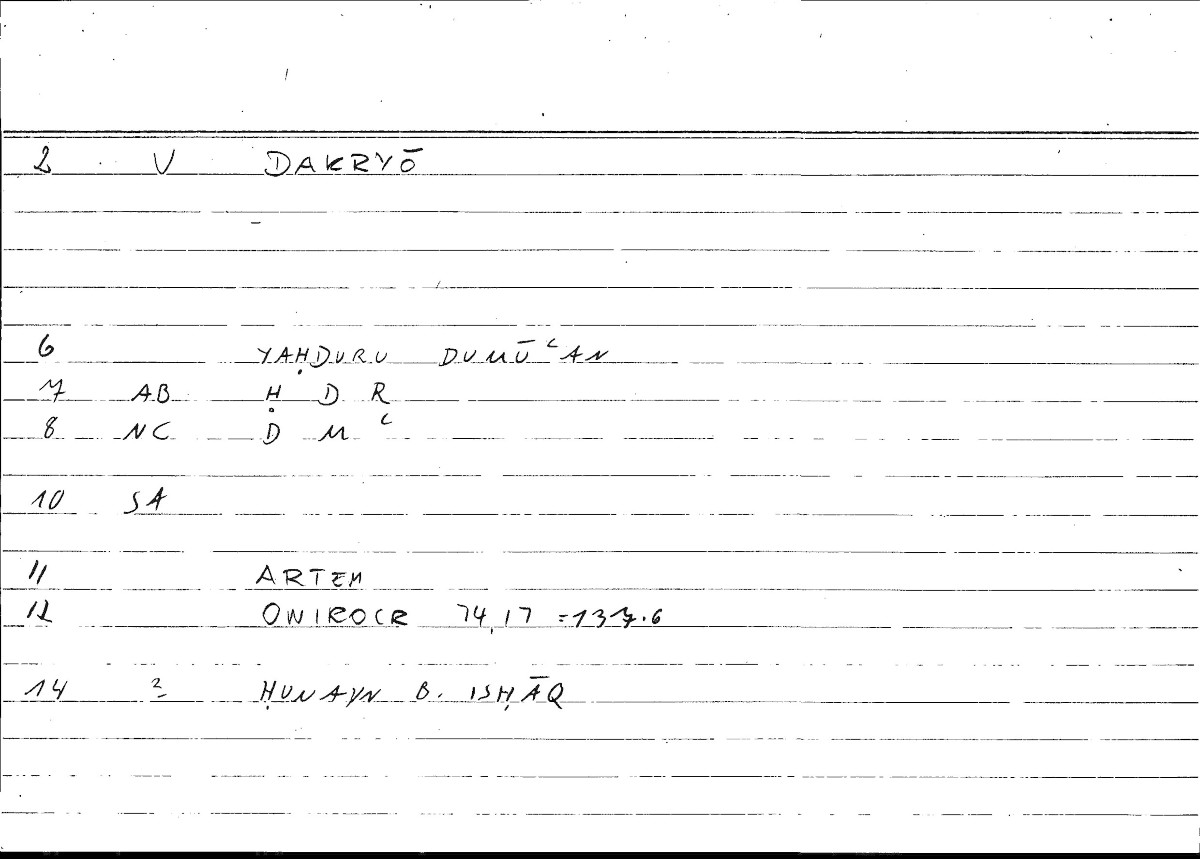 2 V DAKRYŌ
6 YAḤDURU DUMŪʿAN
7 AB Ḥ D R
8 NC D M ʿ
10 SA
11 ARTEM
12 ONIROCR 74,17 =137.6
14 2 ḤUNAYN B. ISḤĀQ